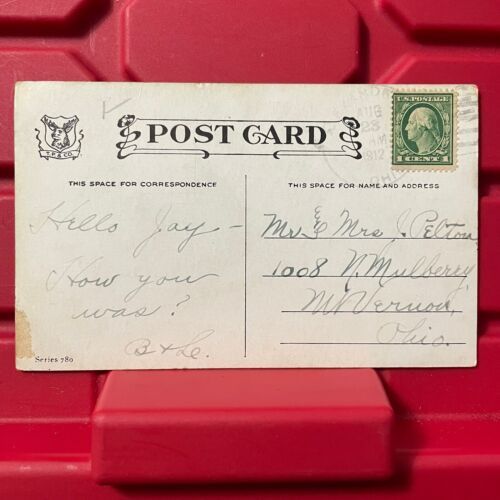 POST CARD
U.S. POSTAGE
1 CENT 1
AUG
23
1912
S.P.& CO.
THIS SPACE FOR CORRESPONDENCE
THIS SPACE FOR NAME AND ADDRESS
Hello Jay -
How you
was?
B & L.
Mr. & Mrs. J. Pelton
1008 N. Mulberry
Mt Vernon,
Ohio.
Series 780